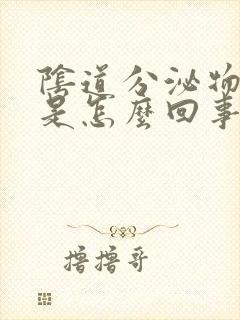 陰道分泌物
是怎麼回事
擼擼哥